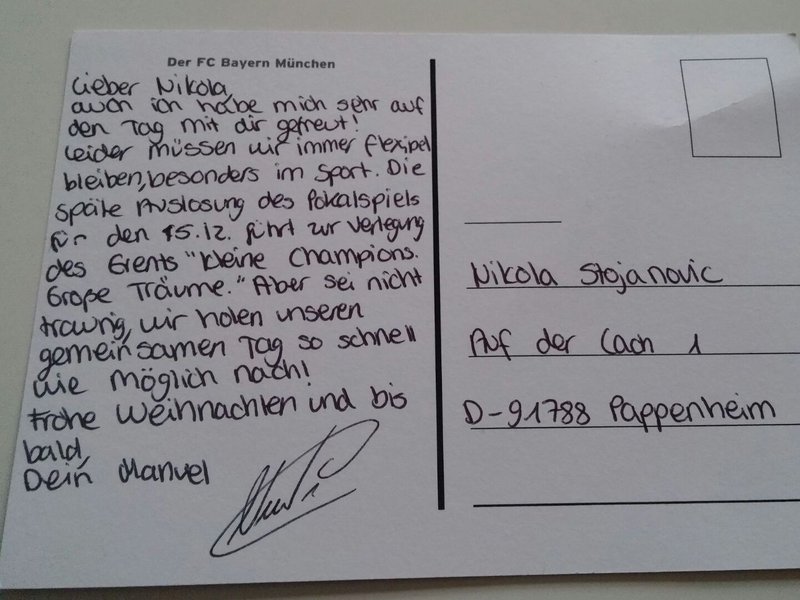 Der FC Bayern München
Lieber Nikola,
auch ich habe mich sehr auf
den Tag mit dir gefreut!
Leider müssen wir immer flexibel
bleiben, besonders im Sport. Die
späte Auslosung des Pokalspiels
für den 15.12. führt zur Verlegung
des Events "Kleine Champions.
Große Träume." Aber sei nicht
traurig, wir holen unseren
gemeinsamen Tag so schnell
wie möglich nach!
Frohe Weihnachten und bis
bald,
Dein Manuel
Nikola Stojanovic
Auf der Lach 1
D-91788 Pappenheim